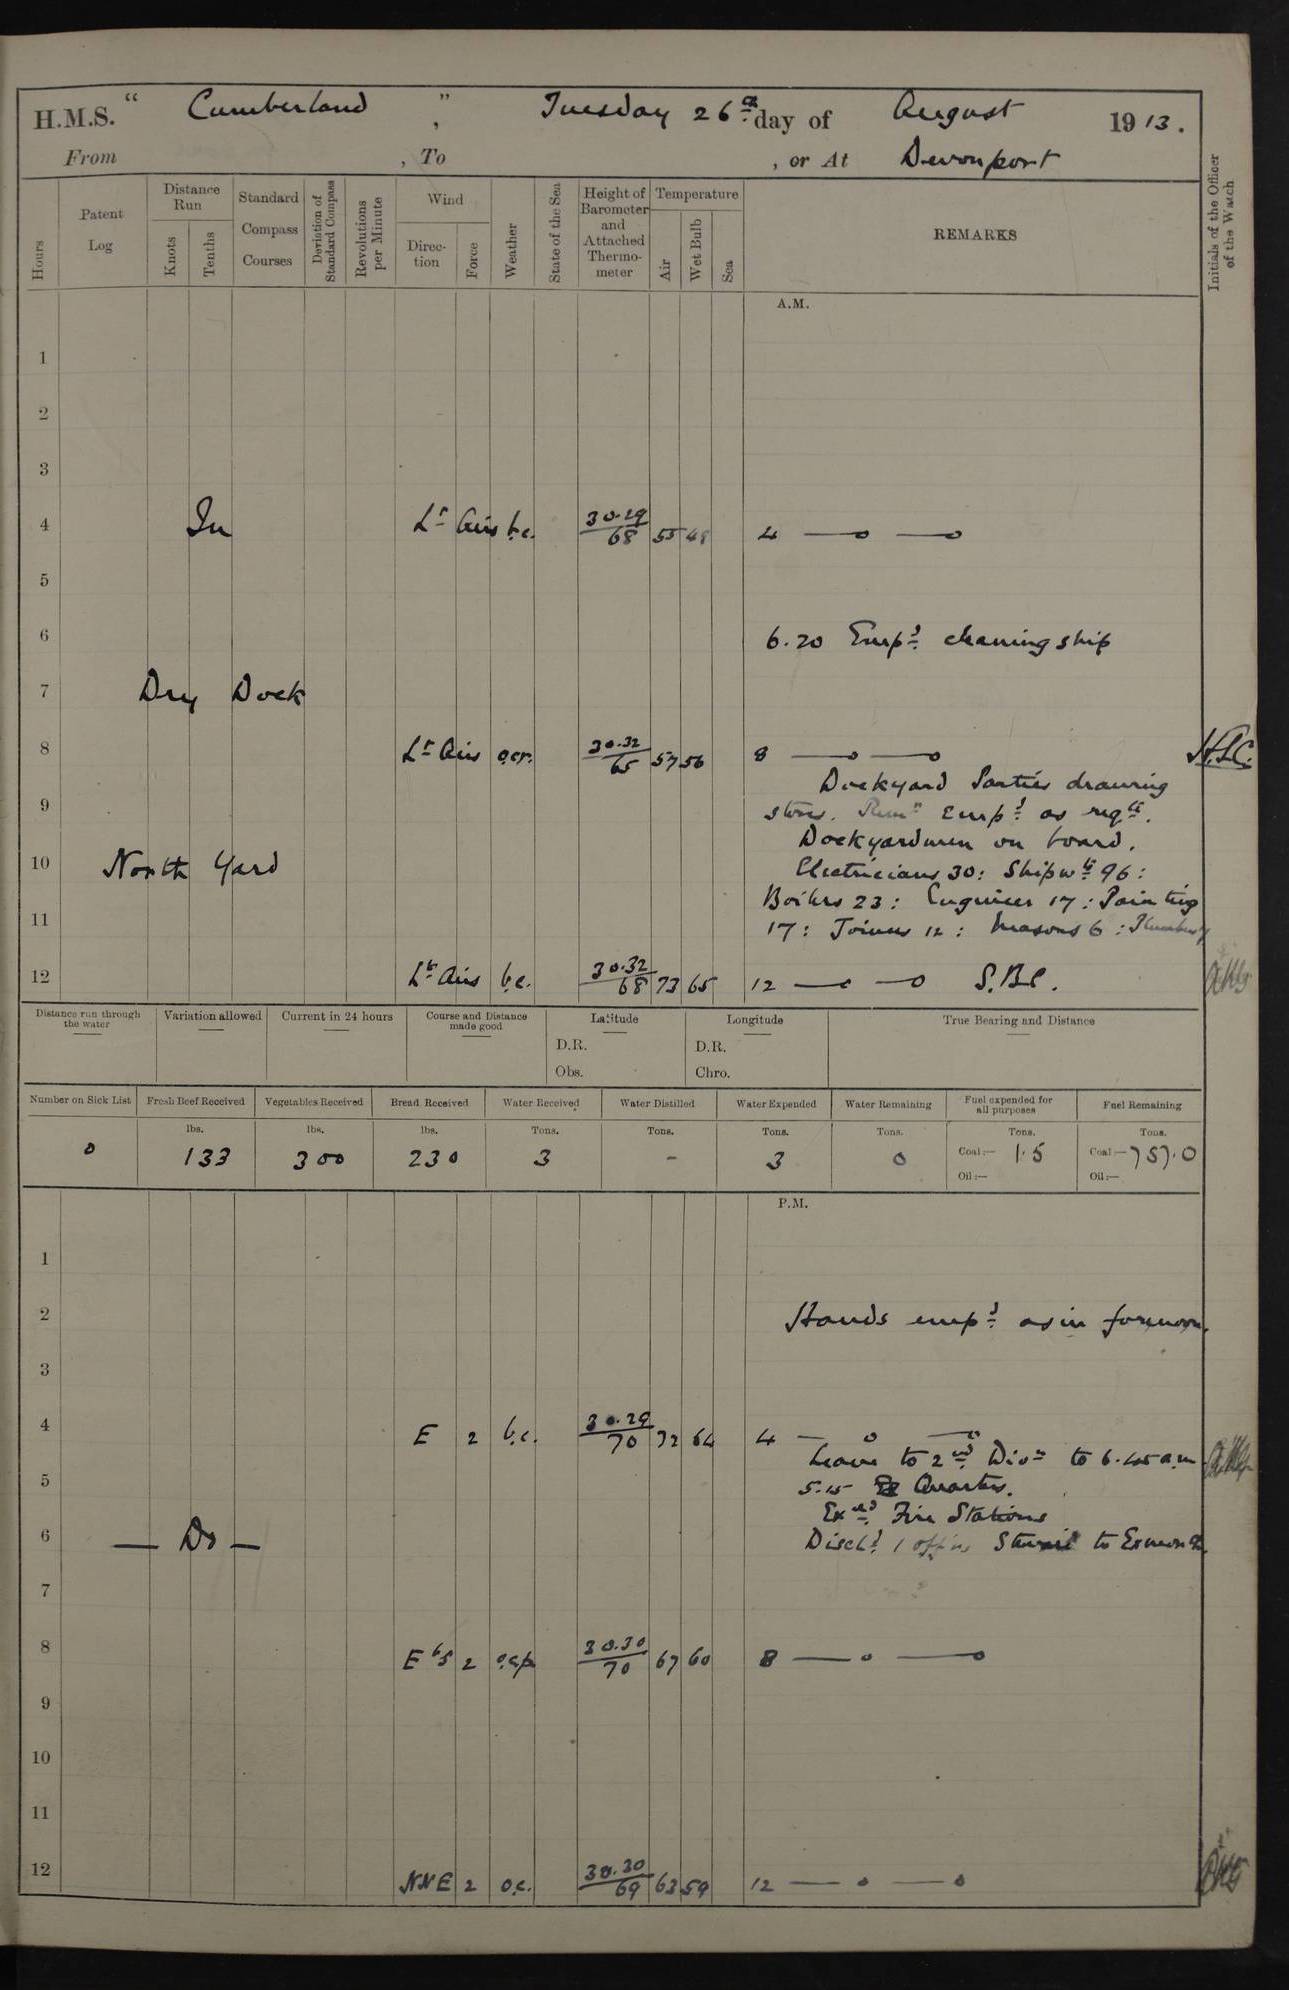 H.M.S. " Cumberland ", Tuesday 26th day of August 1913.
From , To , or At Devonport
Hours
Patent Log
Distance Run
Knots
Tenths
Standard Compass Courses
Deviation of Standard Compass
Revolutions per Minute
Wind
Direction
Force
Weather
State of the Sea
Height of Barometer and Attached Thermometer
Temperature
Air
Wet Bulb
Sea
REMARKS
Initials of the Officer of the Watch
A.M.
1
2
3
4 In Lt Airs b.c. 30.29/68 55 48 4 —o —o
5
6 6.20 Empd. cleaning ship
7 Dry Dock
8 Lt Airs o.c.r. 30.32/65 57 56 8 —o —o
Dockyard Parties drawing
9 stores. Remr Empd. as reqte.
Dockyardmen on board.
10 North Yard Electricians 30: Shipwts 96:
Boilers 23: Engineer 17: Painting
11 17: Joiners 12: Masons 6:
12 Lt Airs b.c. 30.32/68 73 65 12 —o —o S.B.C.
Distance run through the water
Variation allowed
Current in 24 hours
Course and Distance made good
Latitude
D.R.
Obs.
Longitude
D.R.
Chro.
True Bearing and Distance
Number on Sick List Fresh Beef Received Vegetables Received Bread Received Water Received Water Distilled Water Expended Water Remaining Fuel expended for all purposes Fuel Remaining
lbs. lbs. lbs. Tons. Tons. Tons. Tons. Tons. Tons.
0 133 300 230 3 - 3 0 Coal:— 1.5 Coal:— 757.0
Oil:— Oil:—
P.M.
1
2 Hands empd. as in forenoon.
3
4 E 2 b.c. 30.29/70 72 64 4 — o —o
Leave to 2nd Divn to 6.45 a.m.
5 5.15 Quarters.
Exd. Fire Stations
6 — Do — Dischd. 1 offrs Steward to Exmouth
7
8 E b S 2 o.c.p. 30.30/70 67 60 8 — o —o
9
10
11
12 NNE 2 o.c. 30.30/69 63 59 12 — o —o